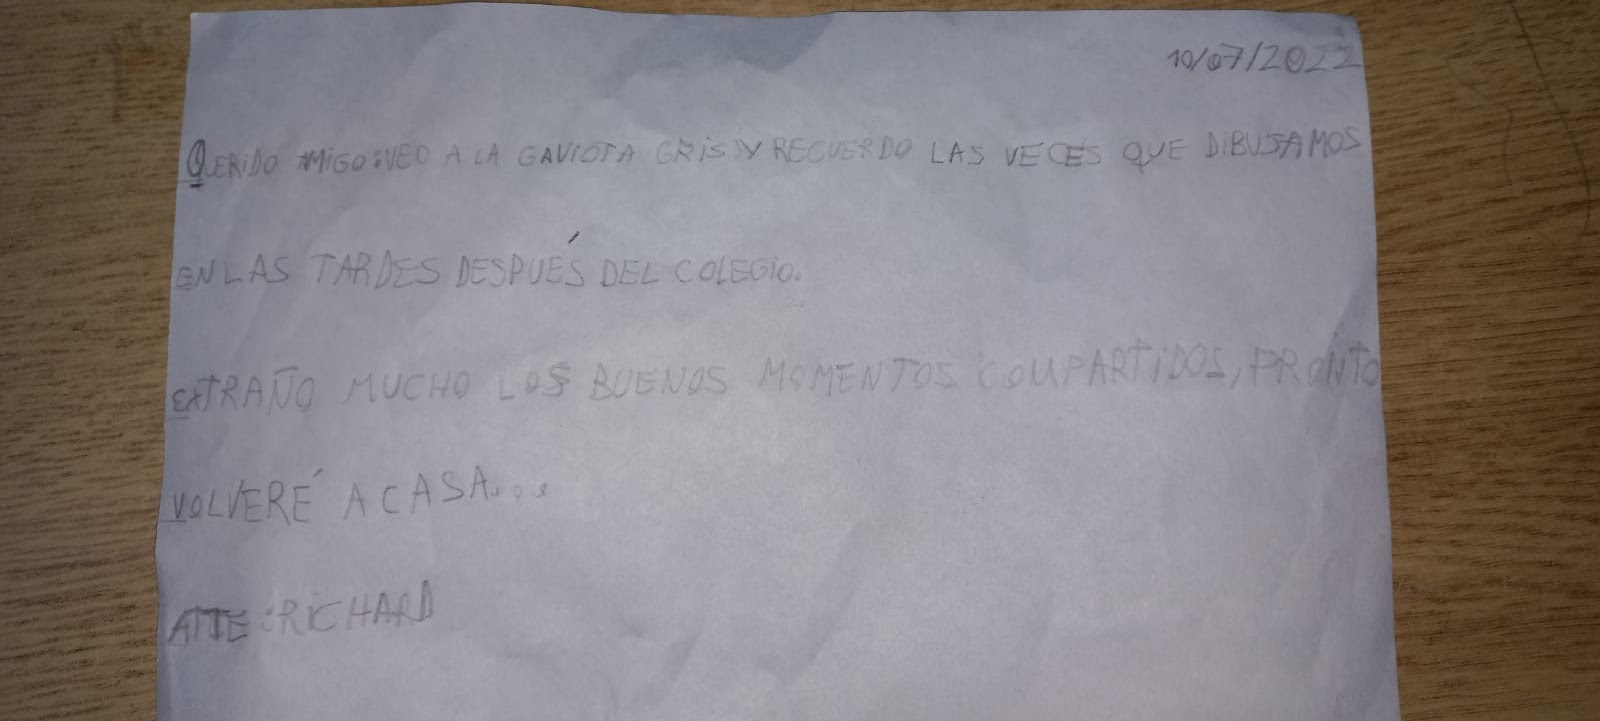 10/07/2022
QUERIDO AMIGO: VEO A LA GAVIOTA GRIS Y RECUERDO LAS VECES QUE DIBUJAMOS
EN LAS TARDES DESPUÉS DEL COLEGIO.
EXTRAÑO MUCHO LOS BUENOS MOMENTOS COMPARTIDOS, PRONTO
VOLVERÉ A CASA...
ATTE: RICHARD